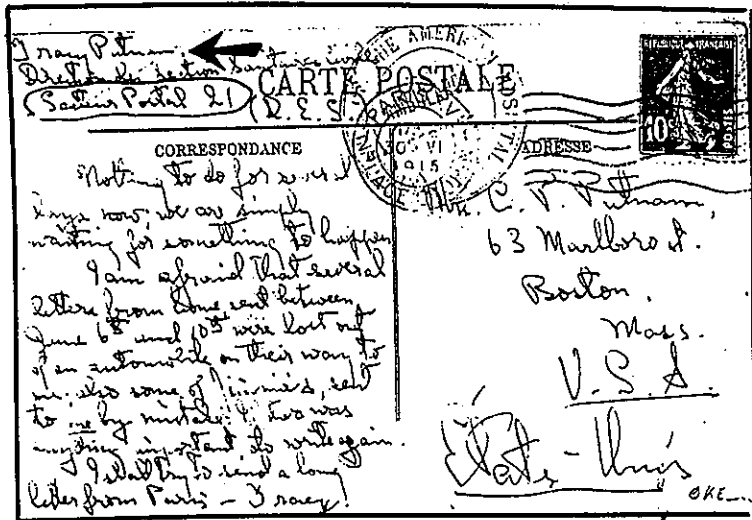 Tracy Putnam.
Section Sanitaire
Secteur Postal 21
CARTE POSTALE
(R.E.S.)
PARIS
30 VI
1915
10
CORRESPONDANCE
ADRESSE
Nothing to do for several
days now; we are simply
waiting for something to happen
I am afraid that several
letters from home sent between
June 6th and 10th were lost out
of an automobile on their way to
me; also some of, sent
to me by mistake. If there was
anything important do write again.
I shall try to send a long
letter from Paris – Tracy.
C. P. Putnam,
63 Marlboro St.
Boston.
Mass.
U.S.A.
États-Unis